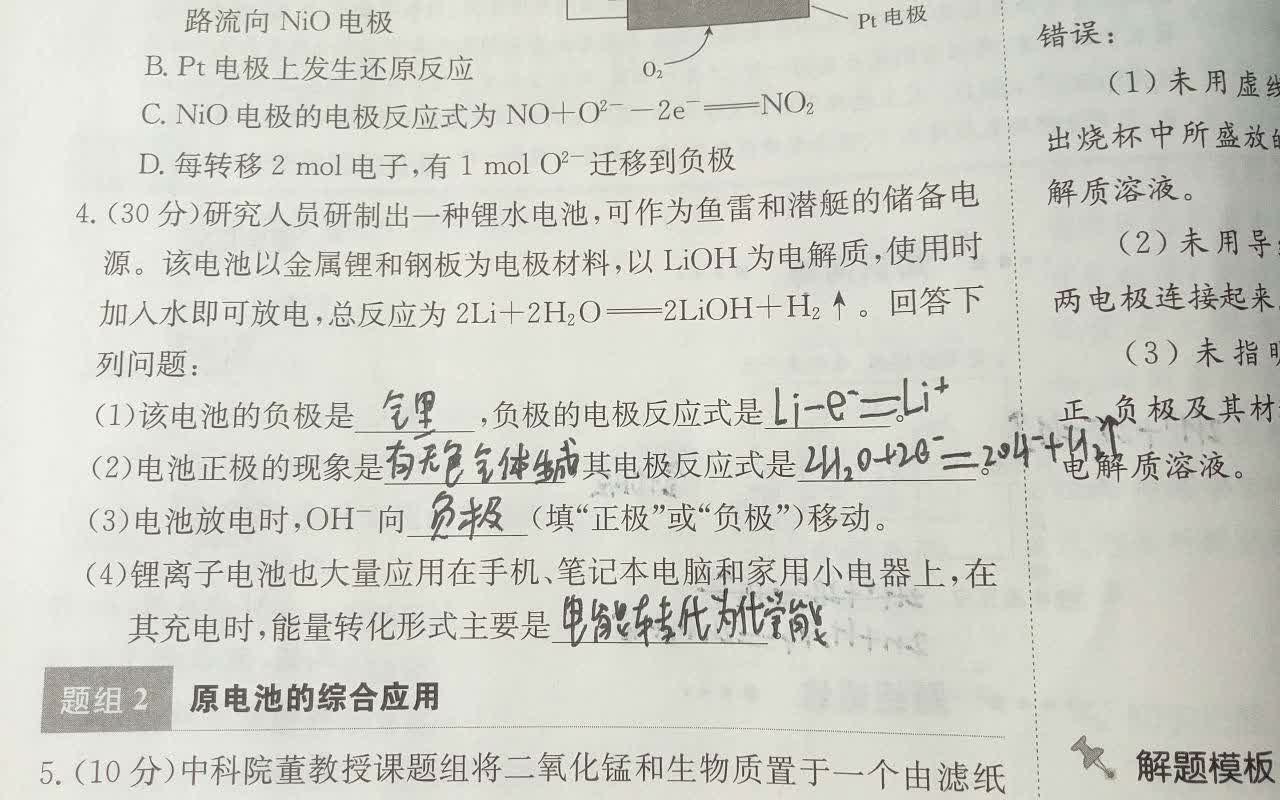 路流向 NiO 电极
Pt 电极
B. Pt 电极上发生还原反应
O₂
C. NiO 电极的电极反应式为 NO+O²⁻−2e⁻══NO₂
D. 每转移 2 mol 电子,有 1 mol O²⁻ 迁移到负极
4. (30 分)研究人员研制出一种锂水电池,可作为鱼雷和潜艇的储备电
源。该电池以金属锂和钢板为电极材料,以 LiOH 为电解质,使用时
加入水即可放电,总反应为 2Li+2H₂O══2LiOH+H₂↑。回答下
列问题:
(1)该电池的负极是 锂 ,负极的电极反应式是 Li−e⁻══Li⁺ 。
(2)电池正极的现象是有无色气体生成其电极反应式是 2H₂O+2e⁻══2OH⁻+H₂↑ 。
(3)电池放电时,OH⁻ 向 负极 (填“正极”或“负极”)移动。
(4)锂离子电池也大量应用在手机、笔记本电脑和家用小电器上,在
其充电时,能量转化形式主要是 电能转化为化学能
题组 2 原电池的综合应用
5. (10 分)中科院董教授课题组将二氧化锰和生物质置于一个由滤纸
错误:
(1)未用虚线
出烧杯中所盛放的
解质溶液。
(2)未用导
两电极连接起来
(3)未指明
正、负极及其材
电解质溶液。
解题模板